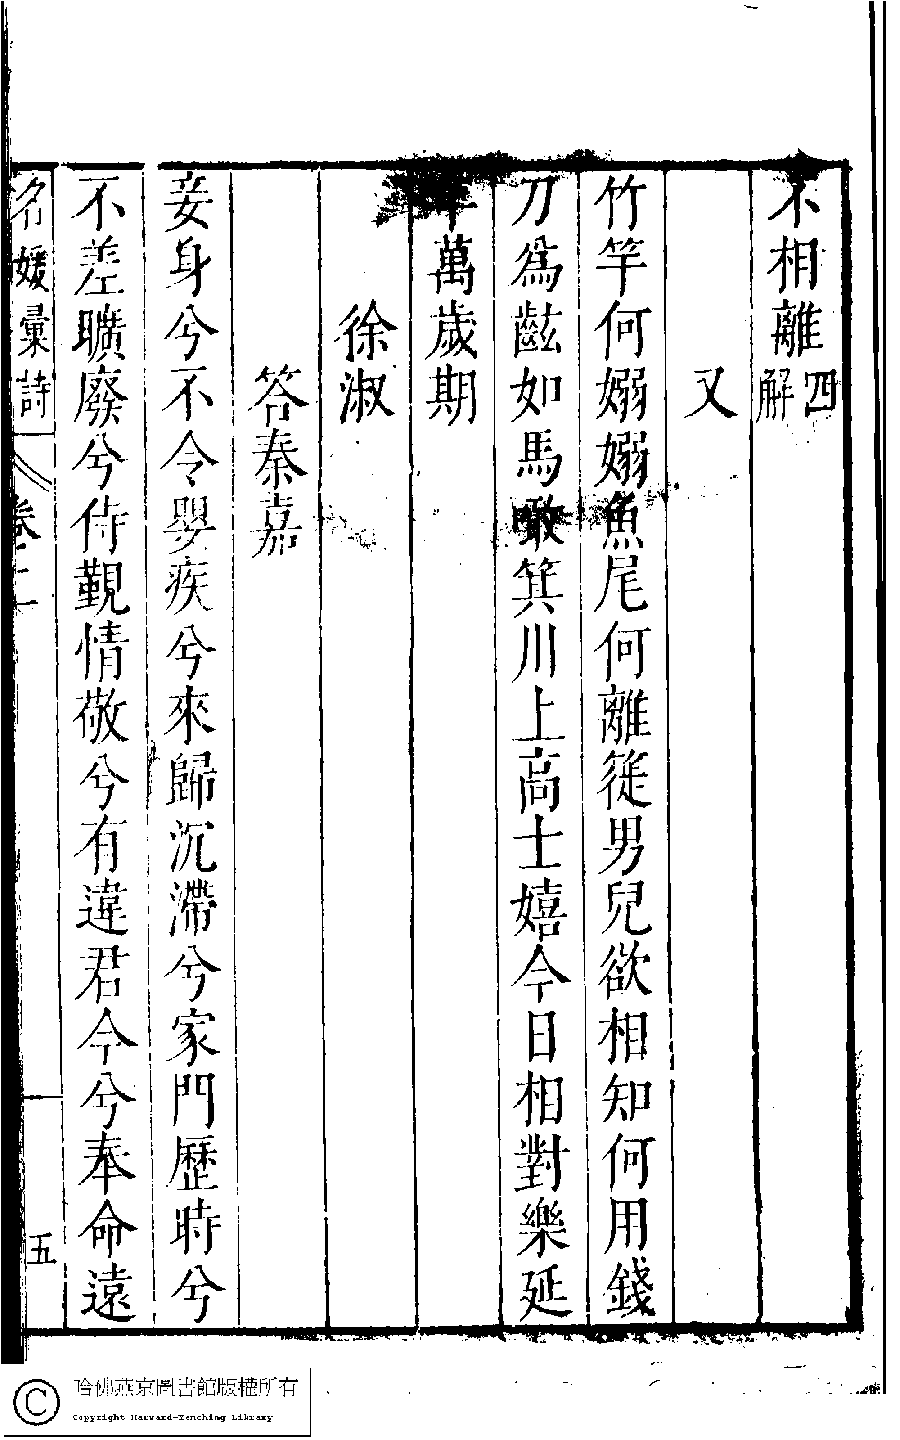 不相離四解
又
竹竿何嫋嫋魚尾何離徙男兒欲相知何用錢
刀爲如馬噉箕川上高士嬉今日相對樂延
年萬歲期
徐淑
答秦嘉
妾身兮不令嬰疾兮來歸沉滯兮家門歷時兮
不差曠廢兮侍覲情敬兮有違君今兮奉命遠
名媛彙詩
卷
五
哈佛燕京圖書館版權所有
Copyright Harvard-Yenching Library